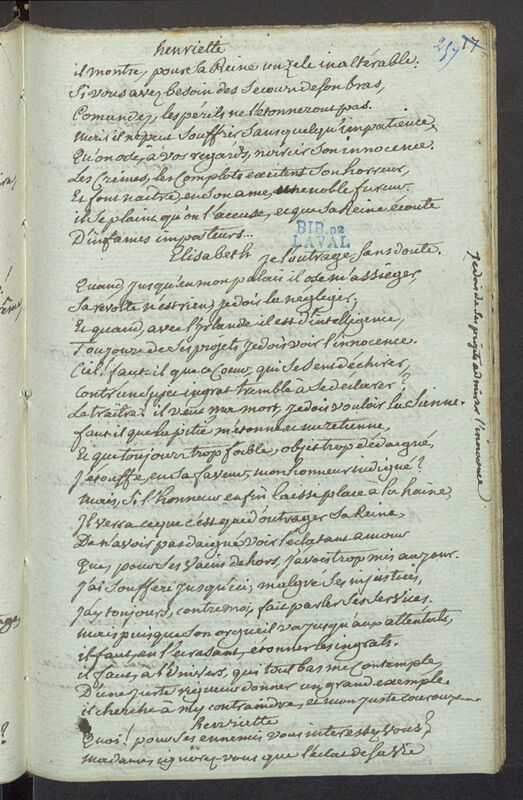 henriette
257 17
il montre, pour sa Reine un zele inaltérable.
Si vous avez besoin des secours de son bras,
Comandez, les périls ne l'etonneront pas.
mais il ne peut souffrir sans quelqu'impatience,
Qu'on ose, à vos regards, noircir son innocence.
Les Crimes, les Complots excitent son horreur,
Et font naitre, en son ame, une noble fureur.
il se plaint qu'on l'accuse, et que sa Reine écoute
D'infames imposteurs...
BIB. DE
LAVAL
Elisabeth je l'outrage sans doute.
Quand, jusqu'en mon palais il ose m'assieger,
Sa revolte n'est rien, je dois la negliger,
Et quand, avec l'Irlande il est d'intelligence,
Toujours de ses projets je dois voir l'innocence.
je dois de ses projets admirer l'innocence
Ciel! faut-il que ce Coeur qui se sent déchirer,
Contre un sujet ingrat tremble à se declarer?
Le traître! il veut ma mort, je dois vouloir la sienne.
faut il que la pitié m'etonne et me retienne,
Et que toujours trop foible, objet trop dédaigné,
J'étouffe, en sa faveur, mon honneur indigné?
mais, si l'honneur enfin laisse place a la haine,
Il verra ce que c'est que d'outrager sa Reine
De n'avoir pas daigné voir l'éclatant amour
Que, pour ses vains dehors, j'avois trop mis au jour.
J'ai souffert jusqu'ici, malgré ses injustices,
J'ay toujours, contre moi, fait parler ses services.
mais puisque son orgueil va jusqu'aux attentats,
il faut, en l'ecrasant, etonner les ingrats.
il faut, à l'Univers, qui tout bas me contemple,
D'une juste rigueur donner un grand exemple.
il cherche à m'y contraindre, et mon juste couroux....
henriette
Quoi! pour ses ennemis vous interessez vous?
madame, ignorez-vous que l'éclat de sa vie